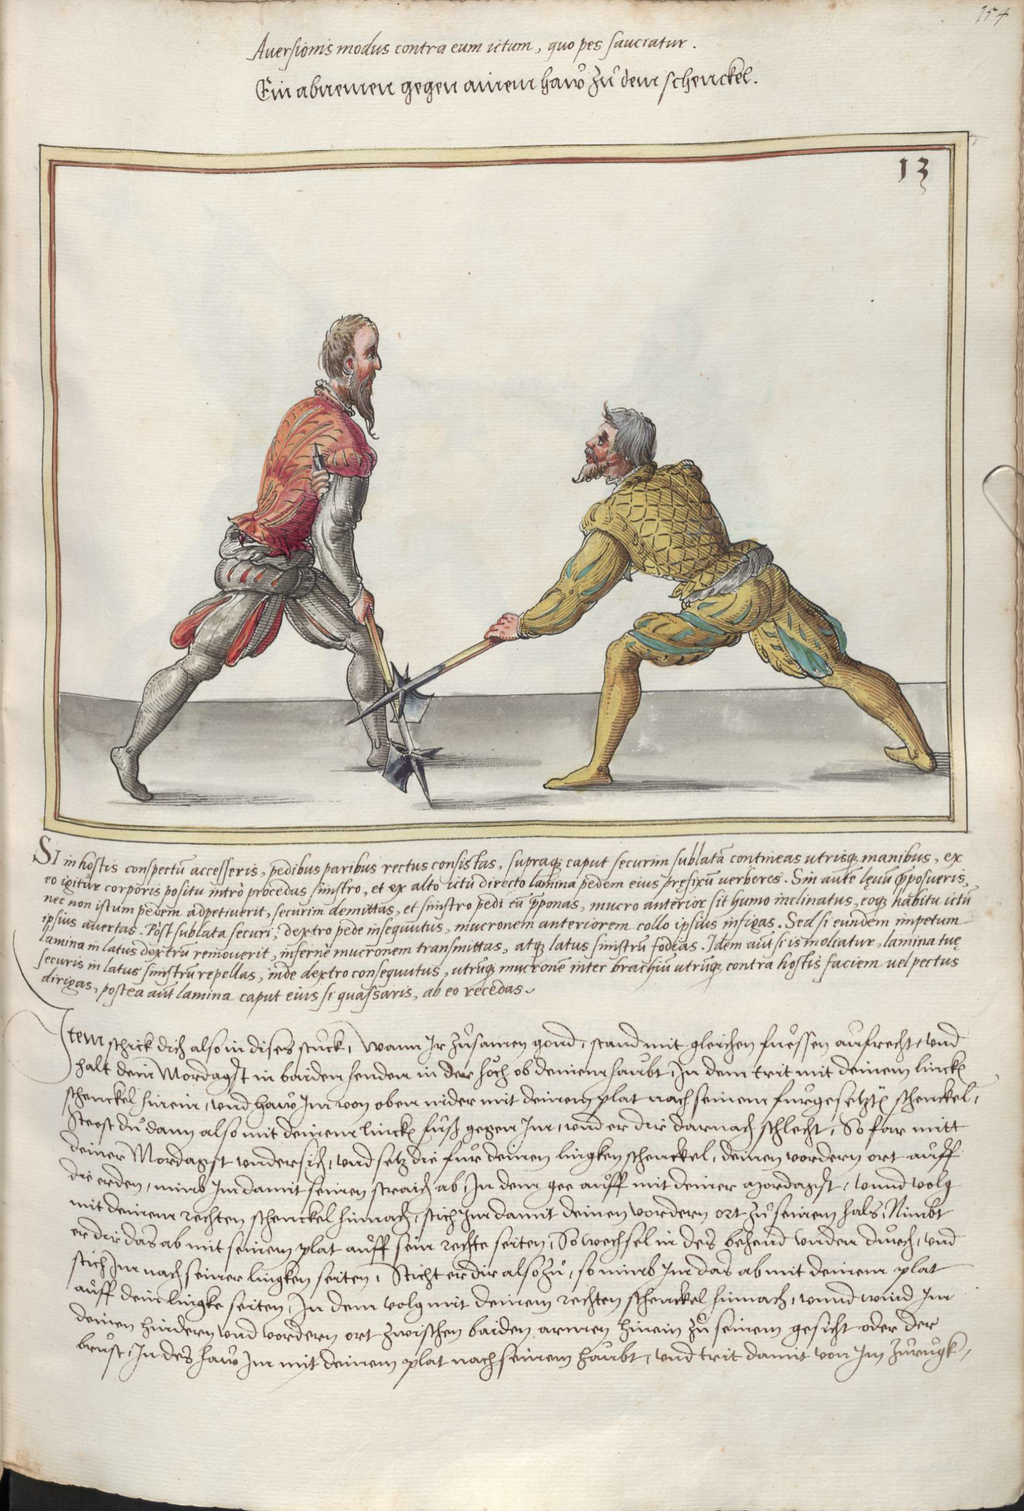 154
Aversionis modus contra eum ictum, quo pes sauciatur.
Ein abnemen gegen ainem haw zů dem schenckel.
13
SI in hostis conspectũ accesseris, pedibus paribus rectus consistas, supraq; caput securim sublatã contineas utrisq; manibus, ex
eo igitur corporis positu intrò procedas sinistro, et ex alto ictu directo lamina pedem eius prefixũ verberes. Sin autẽ leuũ pposueris,
nec non istum pedem adpetiuerit, securim demittas, et sinistro pedi eã pponas, mucro anterior sit humo inclinatus, eoq; habitu ictũ
ipsius auertas. Post sublata securi, dextro pede insequutus, mucronem anteriorem collo ipsius infigas. Sed si eundem impetum
lamina in latus dextrũ remouerit, infernè mucronem transmittas, atq; latus sinistrũ fodias. Idem aũt si is moliatur, lamina tuę
securis in latus sinistrũ repellas, inde dextro consequutus, utrũq; mucronẽ inter brachiũ utrũq; contra hostis faciem vel pectus
dirigas, postea aũt lamina caput eius si quassaris, ab eo recedas.
Item schick dich also in dises stuck, Wann Ir zůsamen gond, stand mit gleichen fuessen aufrecht, vnd
halt dein Mordagst in baiden henden in der höch ob deinem haubt, In dem trit mit deinem linckẽ
schenckel hinein, vnd haw Im von oben nider mit deinem plat nach seinem furgesetztẽ schenckel,
Steest du dann also mit deinem linckẽ fuß gegen Im, vnd er dir darnach schlecht, So far mitt
deiner Mordagst vndersich, vnd setz die fur deinen lingken schenckel, deinen vordern ort auff
die erden, nimb Im damit seinen straich ab, In dem gee auff mit deiner mordagst, vnnd volg
mit deinem rechten schenckel hinnach, stich Im damit deinen vordern ort zů seinem hals, Nimbt
er dir das ab mit seinem plat auff sein rechte seiten, So wechsel in des behend vnden durch, vnd
stich Im nach seiner lingken seiten, Sticht er dir also zů, so nimb Im das ab mit deinem plat
auff dein lingke seiten, In dem volg mit deinem rechten schenckel hinnach, vnnd wind Im
deinen hindern vnd vordern ort zwischen baiden armen hinein zů seinem gesicht oder der
brust, In des haw Im mit deinem plat nach seinem haubt, vnd trit damit von Im zurugk,